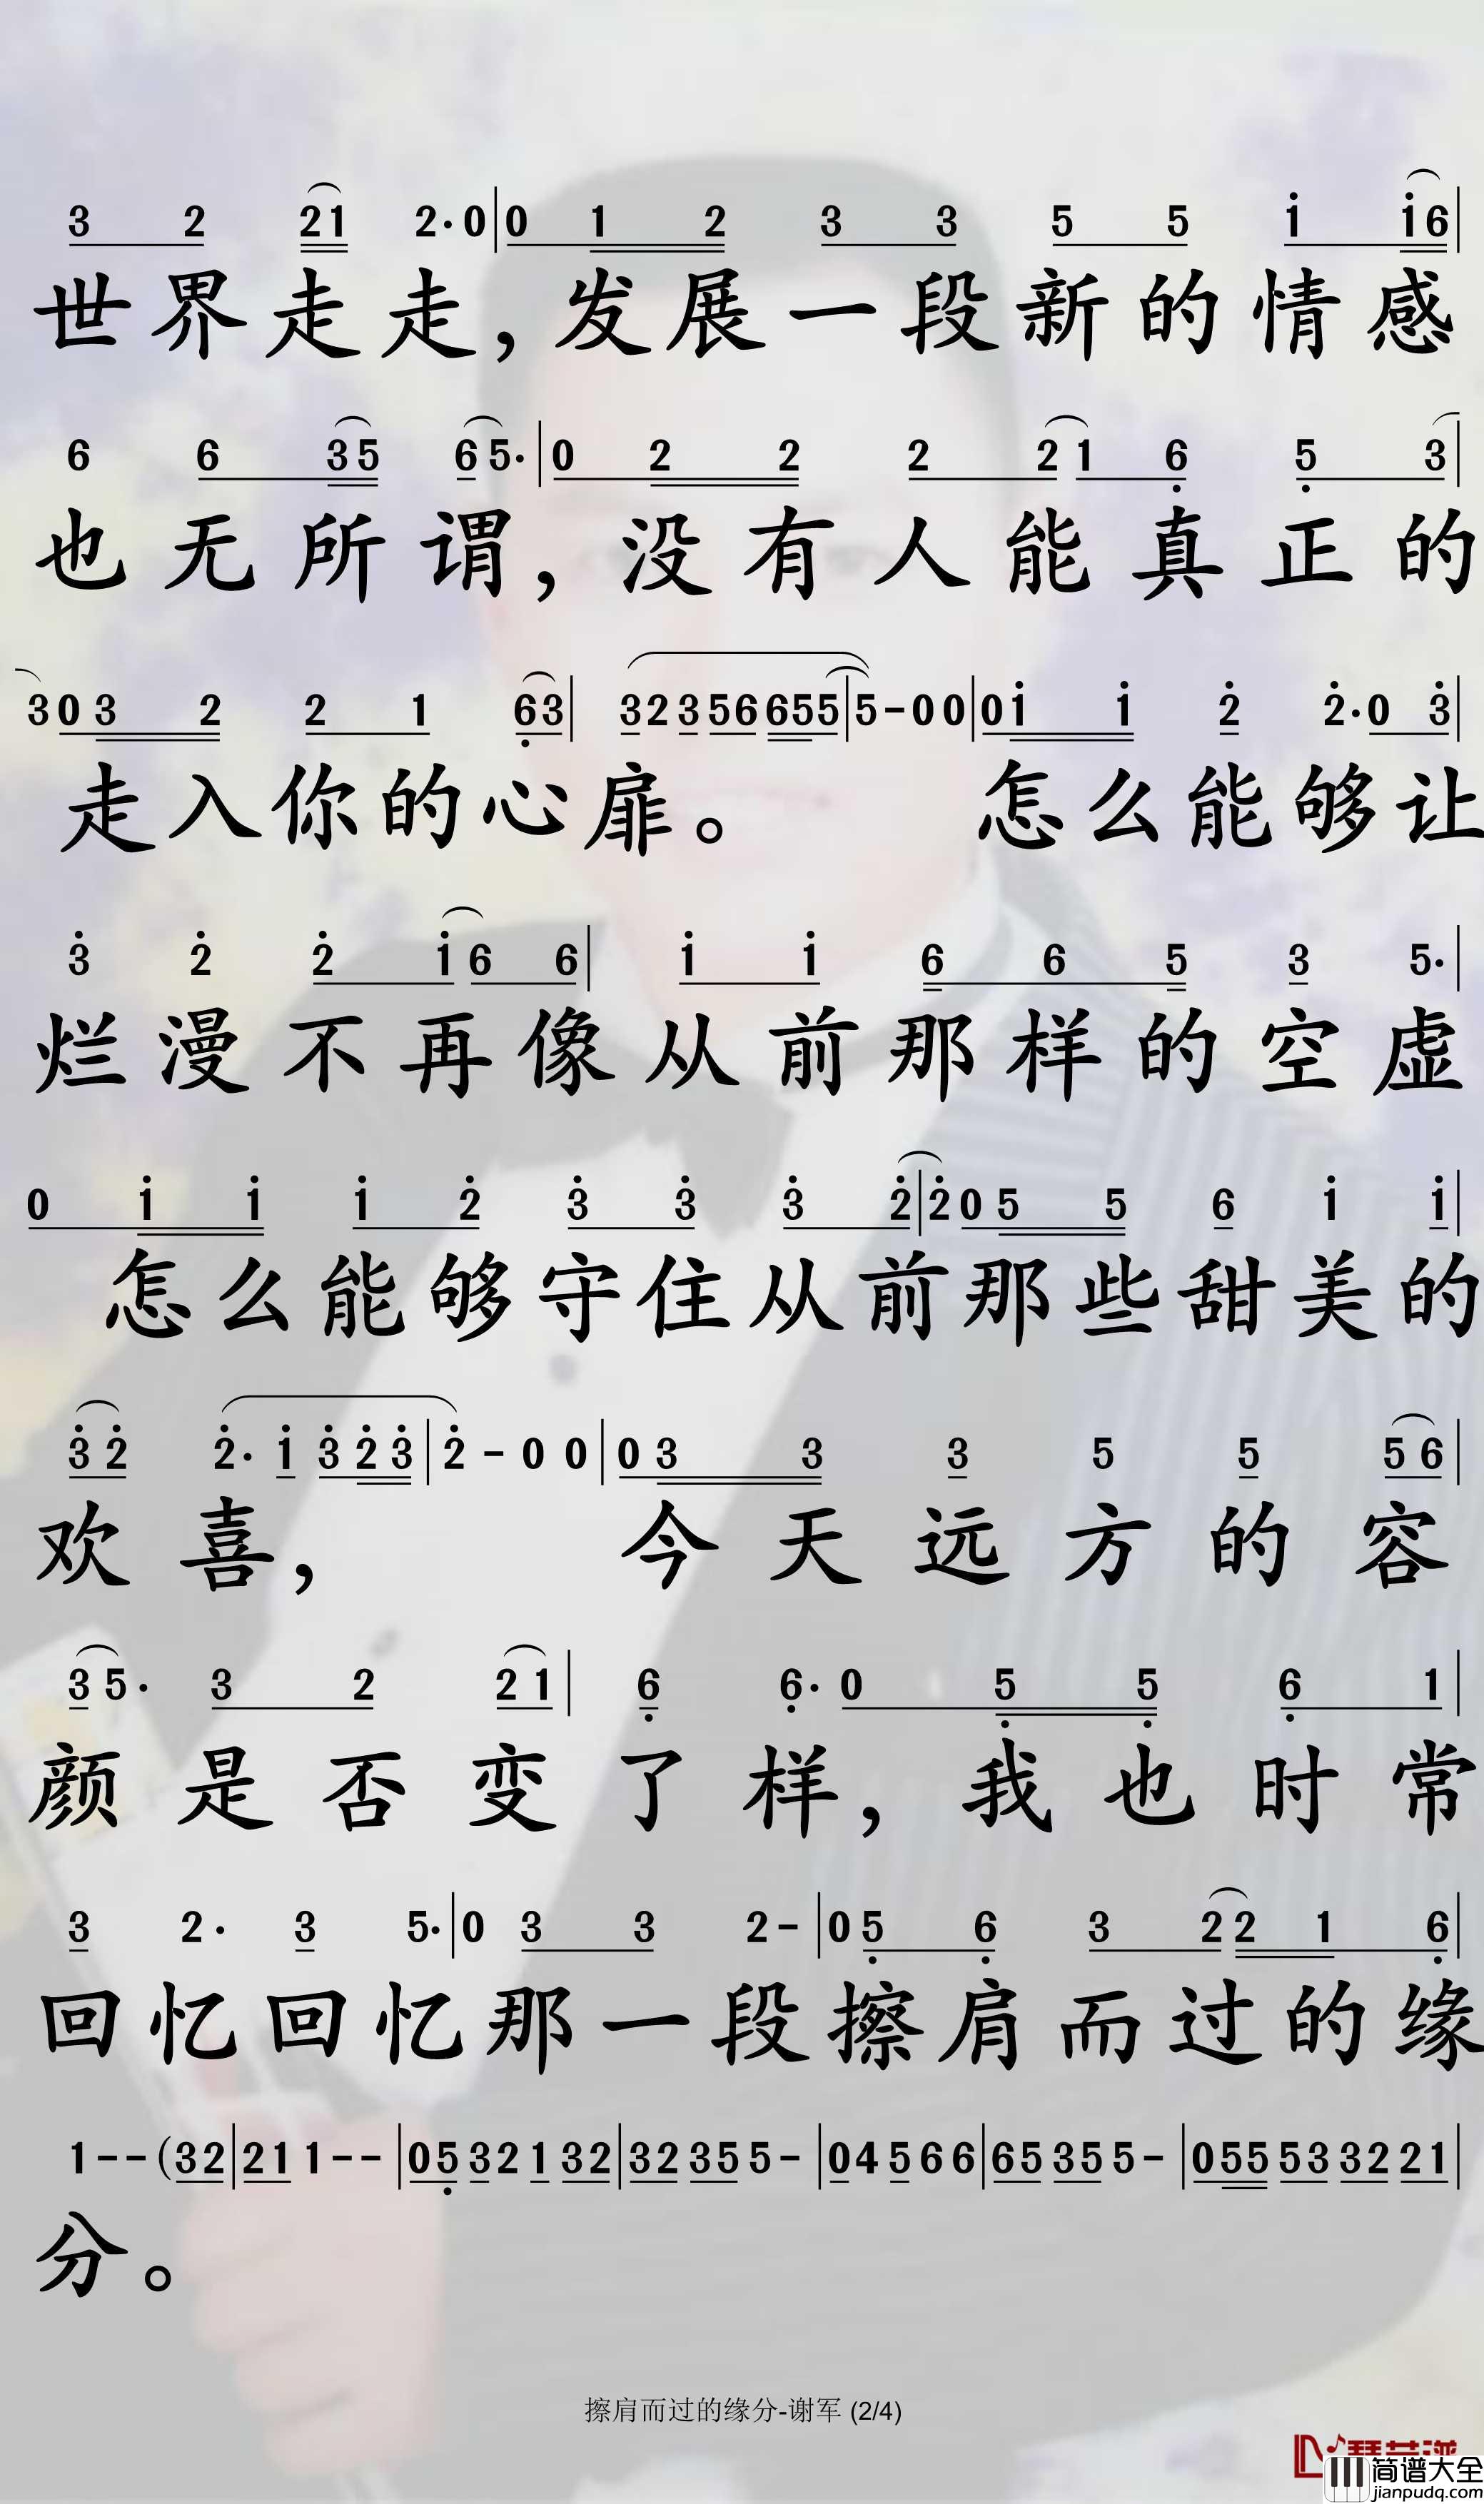 3 2 21 2·0|0 1 2 3 3 5 5 i i6|
世界走走，发展一段新的情感
6 6 35 65·|0 2 2 2 21 6̣ 5̣ 3|
也无所谓，没有人能真正的
30 3 2 2 1 6̣3| 32356 6555|5-00|0i i 2̇ 2̇·0 3̇|
走入你的心扉。 怎么能够让
3̇ 2̇ 2̇ i6 6| i i 6 6 5 3 5·|
烂漫不再像从前那样的空虚
0 i i i 2̇ 3̇ 3̇ 3̇ 2̇|2̇ 0 5 5 6 i i|
怎么能够守住从前那些甜美的
3̇2̇ 2̇· i 3̇ 2̇3̇|2̇-0 0|0 3 3 3 5 5 56|
欢喜， 今天远方的容
35· 3 2 21| 6̣ 6̣·0 5̣ 5̣ 6̣ 1|
颜是否变了样，我也时常
3 2· 3 5·|0 3 3 2-|05̣ 6̣ 3 22 1 6̣|
回忆回忆那一段擦肩而过的缘
1--(32|21 1--|05̣ 321 32|32 35 5-|04 566|65 35 5-|055 53 32 21|
分。
擦肩而过的缘分-谢军 (2/4)
简谱大全
jianpudq.com